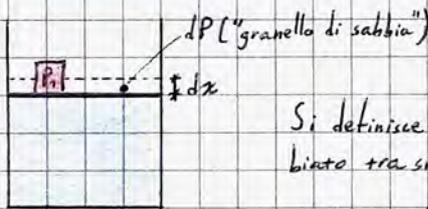 dP ("granello di sabbia")
P₁
dx
Si definisce
biato tra